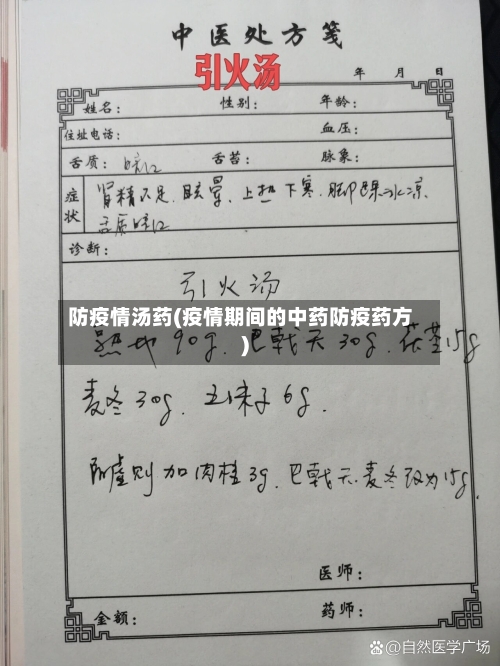 中医处方笺
引火汤
年 月 日
姓名： 性别： 年龄：
住址电话： 血压：
舌质：暗红 舌苔： 脉象：
症状 肾精不足.眩晕.上热下寒.脚踝冰凉.
舌质暗红
诊断：
引火汤
防疫情汤药(疫情期间的中药防疫药方)
熟地90g.巴戟天30g.茯苓15g
麦冬30g.五味子6g.
阳虚则加肉桂3g.巴戟天.麦冬改为15g.
医师：
金额： 药师：
@自然医学广场